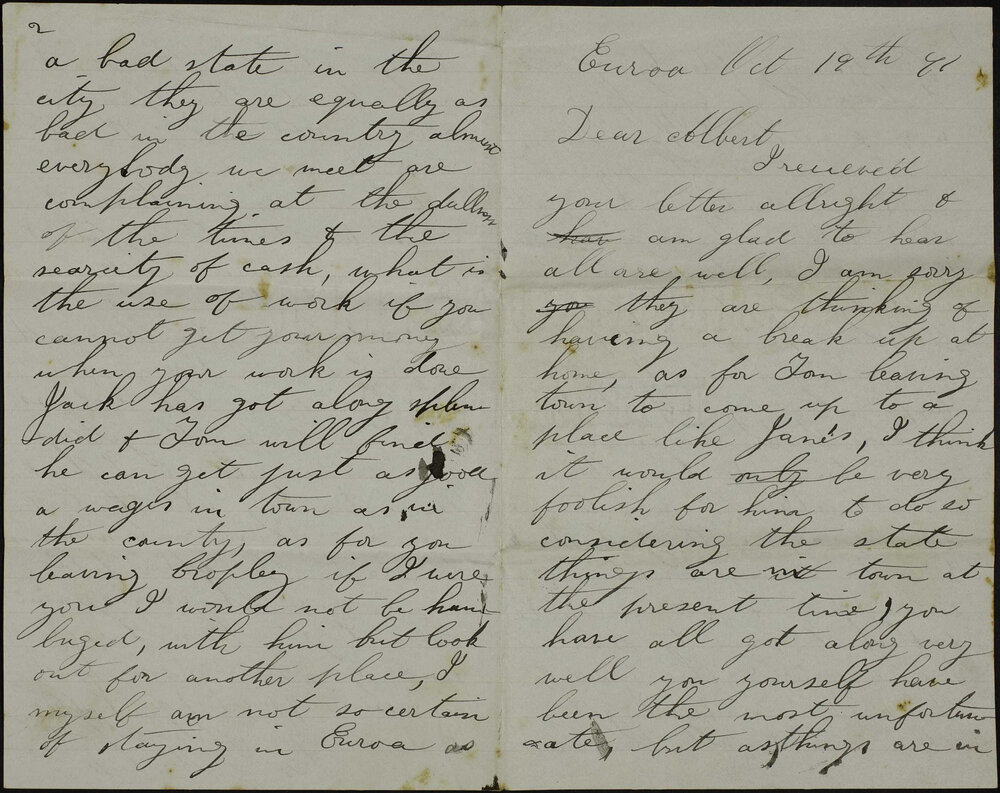 Euroa Oct 19th 91
Dear Albert
I recieved
your letter allright &
have am glad to hear
all are well, I am sorry
you they are thinking of
having a break up at
home, as for Tom leaving
town to come up to a
place like Jane's, I think
it would only be very
foolish for him to do so
considering the state
things are in town at
the present time, you
have all got along very
well you yourself have
been the most unfortun
ate, but as things are in
2
a bad state in the
city they are equally as
bad in the country almost
everybody we meet are
complaining at the dullness
of the times & the
searcity of cash, what is
the use of work if you
cannot get your money
when your work is done
Jack has got along splen
did & Tom will find
he can get just as good
a wages in town as in
the county, as for you
leaving Cropley if I were
you I would not be hum
buged, with him but look
out for another place, I
myself am not so certain
of staying in Euroa as